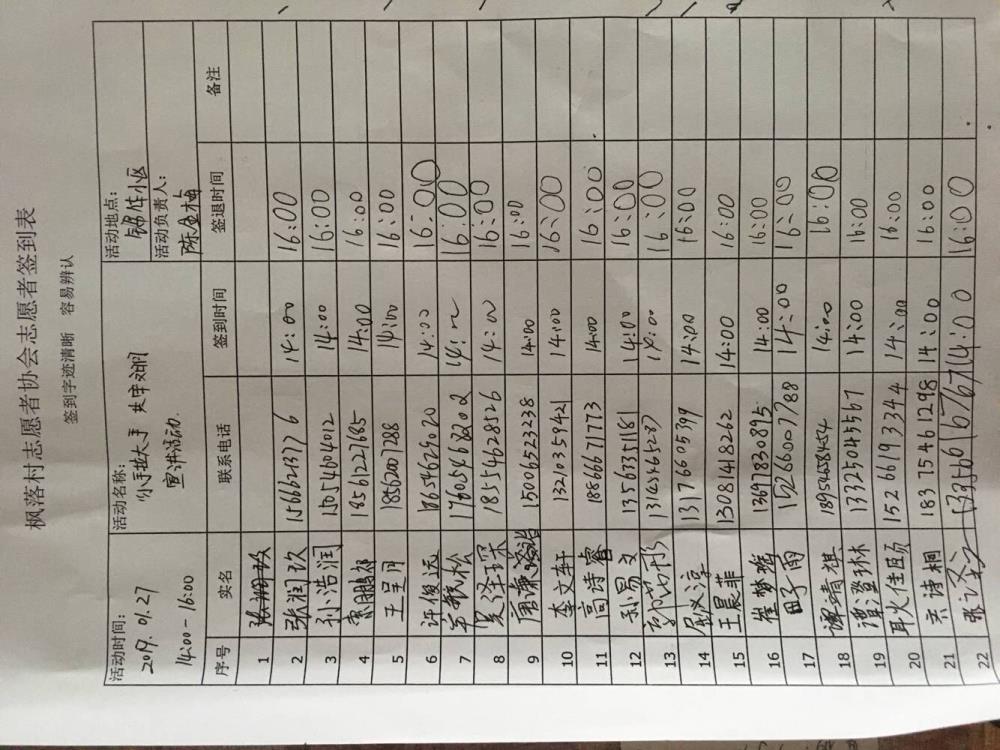 枫落村志愿者协会志愿者签到表
签到字迹清晰 容易辨认
活动时间: 2019.01.27 14:00-16:00
活动名称: 小手拉大手 共申文明 宣讲活动
活动地点:
活动负责人: 陈金梅
序号 实名 联系电话 签到时间 签退时间 备注
1
2 张润玖 15666213776 14:00 16:00
3 孙浩润 15054604012 14:00 16:00
4 18561227685 14:00 16:00
5 王呈月 18562007288 14:00 16:00
6 许俊远 18654629020 14:00 16:00
7 17605468202 14: 16:00
8 吴泽琛 18554628126 14:00 16:00
9 15006523238 14:00 16:00
10 李文轩 13210359421 14:00 16:00
11 高诗睿 18866671773 14:00 16:00
12 孙易文 13563351181 14:00 16:00
13 13145465287 14:00 16:00
14 屈义淳 13176605199 14:00 16:00
15 王晨菲 13081418262 14:00 16:00
16 崔梦瑶 13697830895 14:00 16:00
17 田子雨 15266007788 14:00 16:00
18 谭靖祺 18954658454 14:00 16:00
19 谭澄琳 13325045567 14:00 16:00
20 耿佳颐 15266193344 14:00 16:00
21 宋诗桐 18375461298 14:00 16:00
22 14:00 16:00